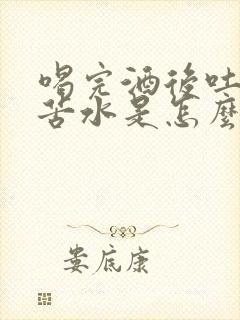 喝完酒後吐
苦水是怎麼
娄底康